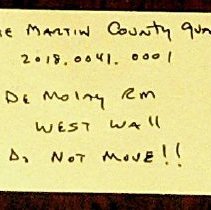 MARTIN COUNTY
2018.0041.0001
DE MOLAY RM
WEST WALL
DO NOT MOVE!!